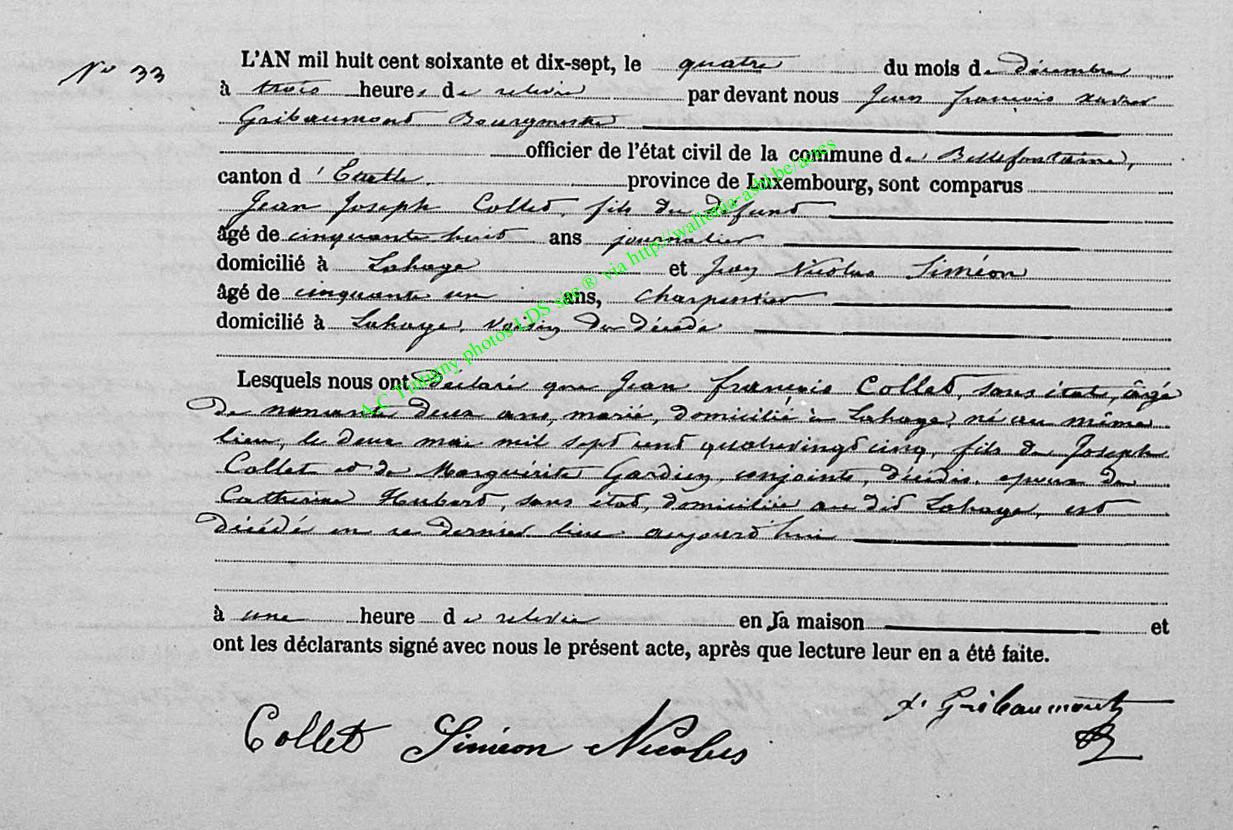 No 33
L'AN mil huit cent soixante et dix-sept, le quatre du mois de décembre
à trois heures de relevée par devant nous Jean françois xavier
Gribaumont Bourgmestre
officier de l'état civil de la commune de Bellefontaine,
canton d'Etalle. province de Luxembourg, sont comparus
Jean Joseph Collet, fils du défunt
âgé de cinquante huit ans journalier
domicilié à Lahage et Jean Nicolas Siméon
âgé de cinquante un ans, charpentier
domicilié à Lahage, voisin du décédé
Lesquels nous ont déclaré que Jean françois Collet, sans état, âgé
de nonante deux ans, marié, domicilié à Lahage, né au même
lieu, le deux mai mil sept cent quatrevingt cinq, fils de Joseph
Collet et de Marguerite Gardien, conjoints, décédés, époux de
Catherine Hubert, sans état, domiciliée au dit Lahage, est
décédé en ce dernier lieu aujourd'hui
à une heure de relevée en sa maison et
ont les déclarants signé avec nous le présent acte, après que lecture leur en a été faite.
Collet Siméon Nicolas x. Gribaumont
A.C Tintigny photos LDS site ® via http://wallonia-asbl.be/actes